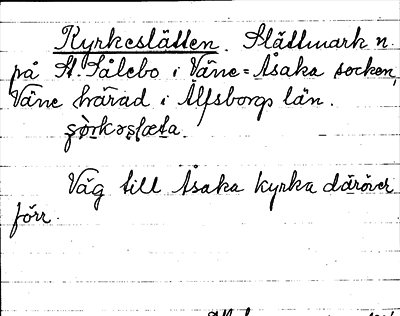 Kyrkeslätten. Slättmark n.
på St. Sålebo i Väne-Åsaka socken,
Väne härad i Älfsborgs län.
Väg till Åsaka kyrka däröver
förr.